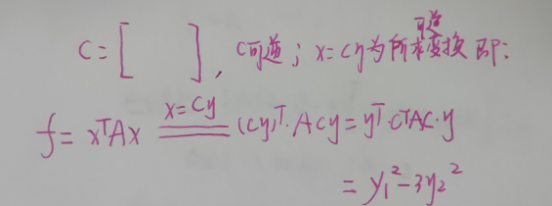 C=[ ], C可逆; x=Cy为所求可逆变换 即:
f= xᵀAx x=Cy (Cy)ᵀ·ACy= yᵀ·CᵀAC·y
= y₁²-3y₂²